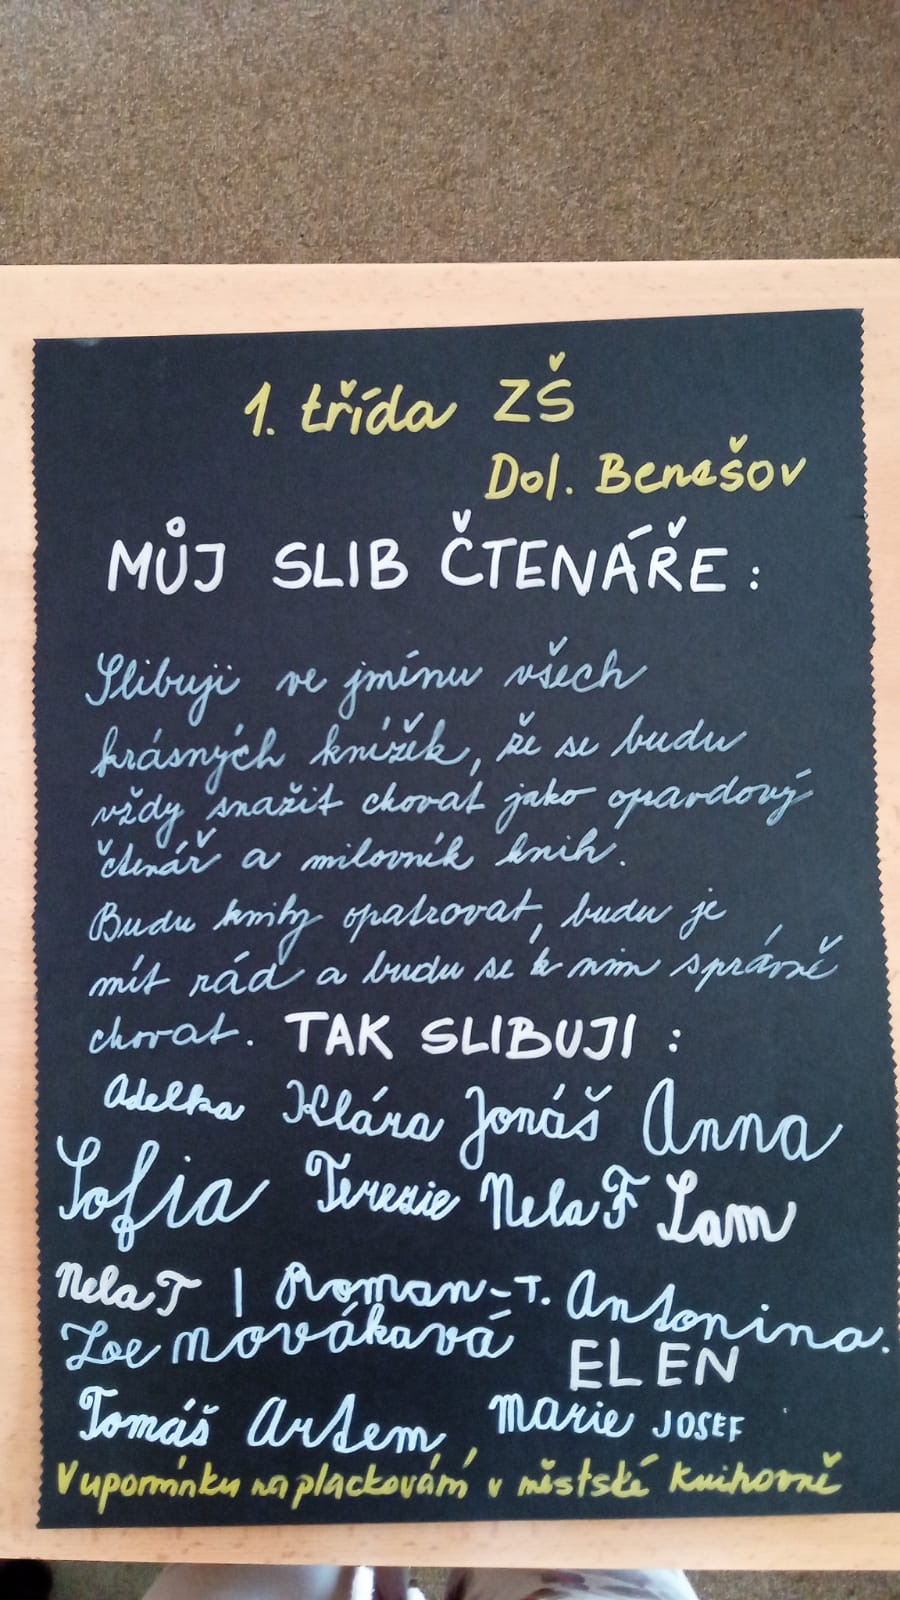 1. třída ZŠ
Dol. Benešov
MŮJ SLIB ČTENÁŘE:
Slibuji ve jménu všech
krásných knížek, že se budu
vždy snažit chovat jako opardový
čtenář a milovník knih.
Budu knihy opatrovat, budu je
mít rád a budu se k nim správně
chovat. TAK SLIBUJI:
Adelka Klára Jonáš Anna
Sofia Terezie Nela F Sam
Nela T | Roman-T. Antonina.
Zoe Nováková ELEN
Tomáš Artem Marie JOSEF
V upomínku na plackování v městské knihovně